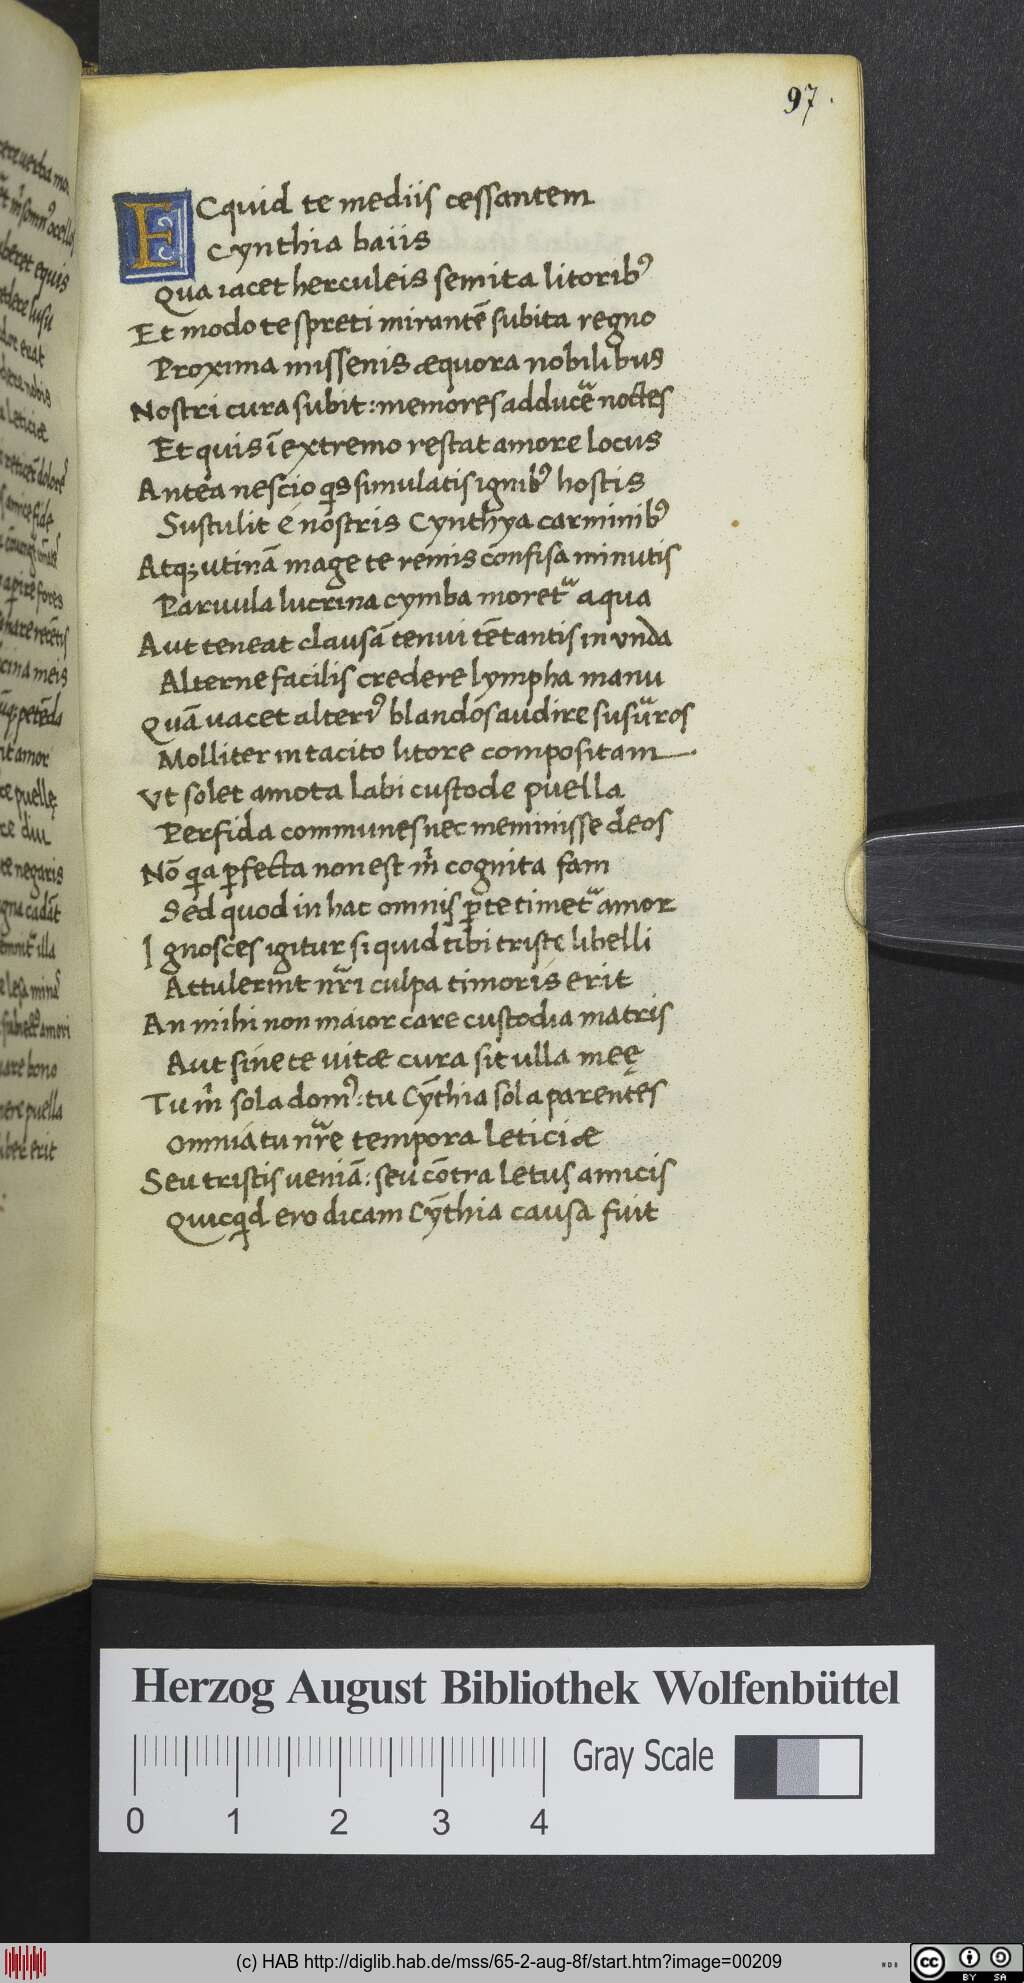 97.
ECquid te mediis cessantem
Cynthia baiis
Qua iacet herculeis semita litorib⁹
Et modo te spreti mirantē subita regno
Proxima missenis æquora nobilibus
Nostri cura subit: memores adducēͣ noctes
Et quis ī extremo restat amore locus
Antea nescio qͥs simulatis ignib⁹ hostis
Sustulit é nostris Cynthya carminib⁹
Atq; utinā mage te remis confisa minutis
Paruula lucrina cymba moretᷓ aqua
Aut teneat clausā tenui tētantis in vnda
Alterne facilis credere lympha manu
Quā uacet alteri⁹ blandos audire susuᷓros
Molliter in tacito litore compositam
Vt solet amota labi custode puella
Perfida communes nec meminisse deos
Nō qͥa ꝑfecta non est m̊ cognita fam
Sed quod in hac omnis ꝑte timetᷓ amor
Ignosces igitur si quid tibi triste libelli
Attulerint nrᷓi culpa timoris erit
An mihi non maior care custodia matris
Aut sine te uitæ cura sit ulla meę
Tu m̊ sola dom⁹: tu Cȳthia sola parentes
Omnia tu nrᷓe tempora leticiæ
Seu tristis ueniā: seu cōtra letus amicis
Quicqͥd ero dicam Cȳthia causa fuit
Herzog August Bibliothek Wolfenbüttel
Gray Scale
0 1 2 3 4
(c) HAB http://diglib.hab.de/mss/65-2-aug-8f/start.htm?image=00209
cc BY SA